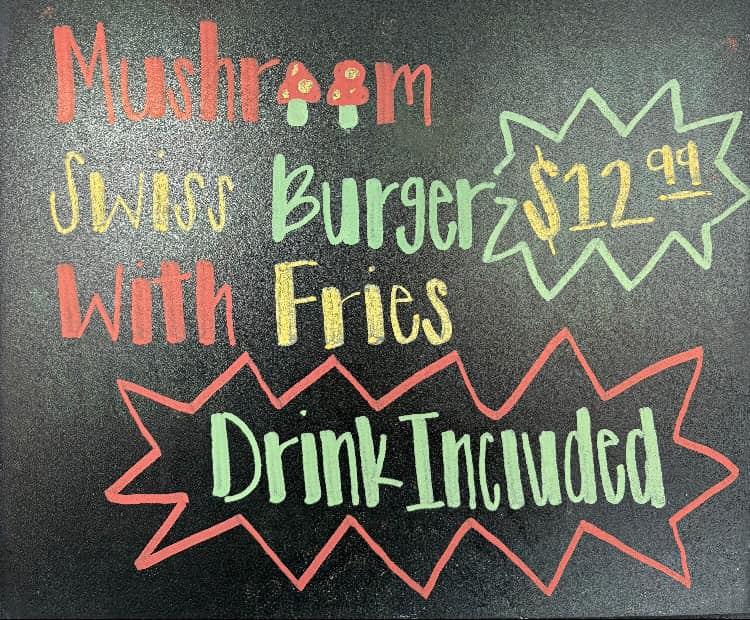 Mushroom
Swiss Burger $12.99
With Fries
Drink Included